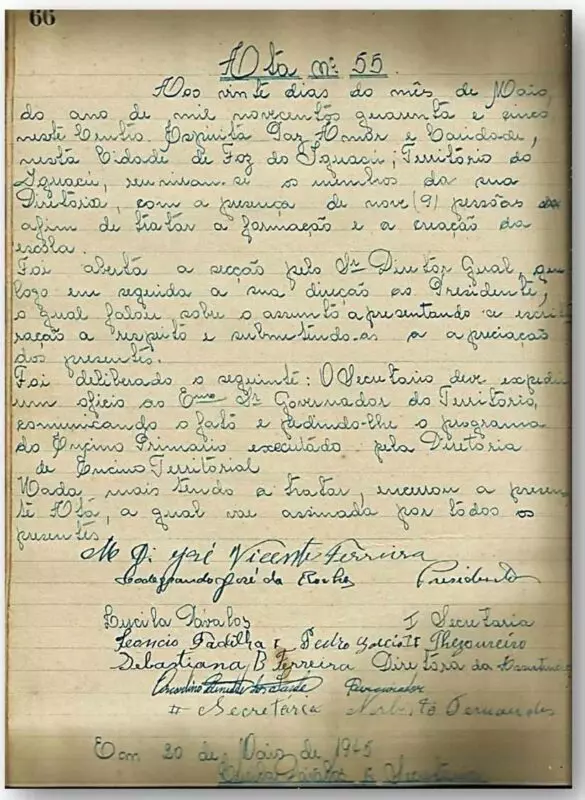 66
Ata nº 55.
Aos vinte dias do mês de Maio,
do ano de mil novecentos quarenta e cinco
neste Centro Espirita Paz Amor e Caridade,
nesta Cidade de Foz do Iguaçú, Território do
Iguaçú, reuniram-se os membros da sua
Diretória, com a presença de nove (9) pessôas
afim de tratar a formação e a creação da
escóla.
Foi aberta a secção pelo Sr Diretor Gual, que
logo em seguida a sua direção ao Presidente,
o qual falou sobre o assunto apresentando a escritu
ração a respeito e submetendo-as a apreciação
dos presentes.
Foi deliberado o seguinte: O Secutario deve expedir
um oficio ao Emo Sr Governador do Territorio,
comunicando o fato e pedindo-lhe o programa
do Encino Primario executádo pela Diretoria
de Encino Territorial
Nada mais tendo a tratar, encerrou a presen
te Ata, a qual vae assinada por todos os
presentes
José Vicente Ferreira
José da Rocha Presidente
Lucila Dávalos I Secretaria
Leoncio Padilha Pedro Thezoureiro
Sebastiana B Ferreira Diretora da
Procurador
II Secretária Norberto Fernandes
Em 20 de Maio de 1945